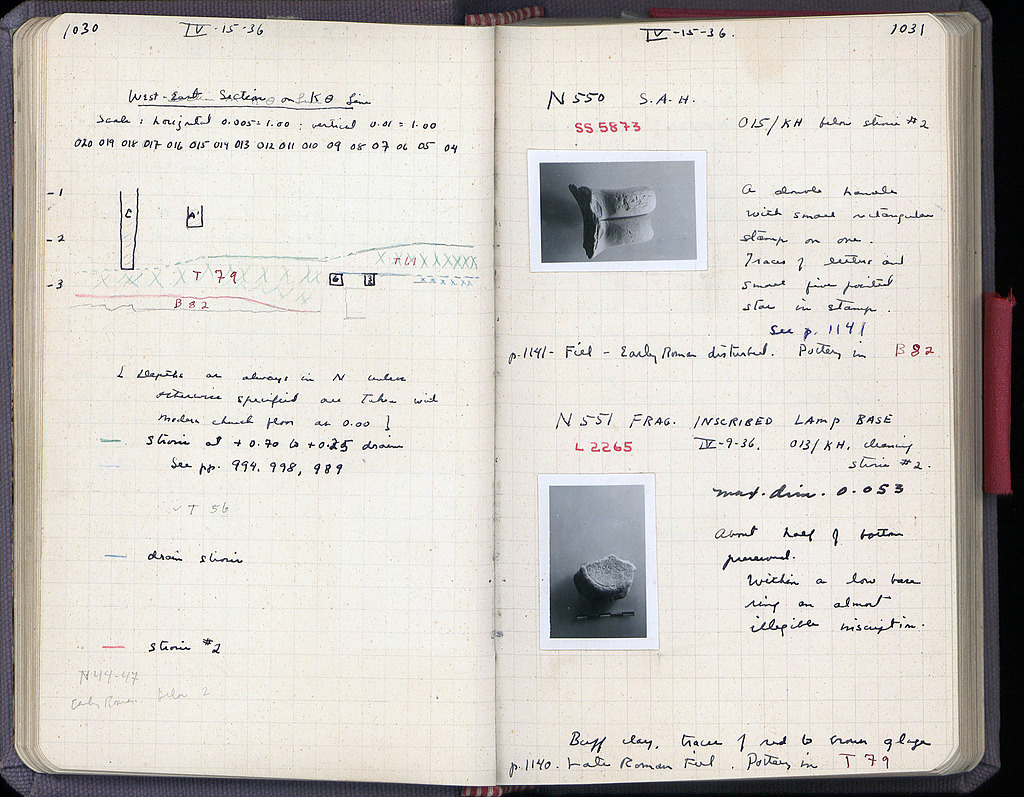 1030
IV-15-36
West-East Section on KΘ Line
Scale: horizontal 0.005=1.00; vertical 0.01=1.00
020 019 018 017 016 015 014 013 012 011 010 09 08 07 06 05 04
-1
C
A
-2
T 79
-3
B 82
[Depths as always in N unless
otherwise specified are taken with
modern church floor as 0.00]
strosis at +0.70 to +0.25 drain
See pp. 994, 998, 989
✓T 56
drain strosis
strosis #2
N44-47
Early Roman below 2
IV-15-36.
1031
N550 S.A.H.
SS 5873
015/KH below strosis #2
A double handle
with small rectangular
stamp on one.
Traces of letters and
small five pointed
star in stamp.
See p. 1141
p.1141- Fill - Early Roman disturbed. Pottery in B 82
N551 FRAG. INSCRIBED LAMP BASE
L 2265
IV-9-36. 013/KH, cleaning
strosis #2.
max. dim. 0.053
About half of bottom
preserved.
Within a low base
ring an almost
illegible inscription.
Buff clay, traces of red to brown glaze
p.1140. Late Roman Fill. Pottery in T 79